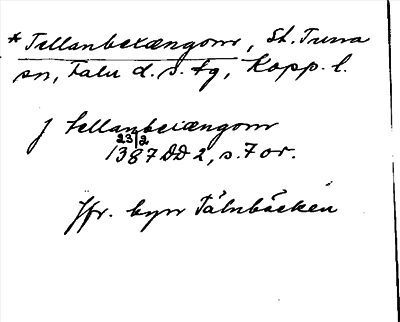 *Tellanbexængom, St. Tuna
sn, Falu d. s. tg, Kopp. l.
j tellanbexængom
23/2
1387 DD 2, s. 7 or.
Jfr. byn Tälnbäcken